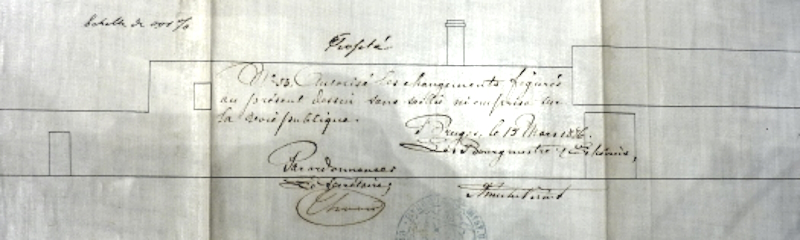 Echelle de
Projeté
N° 33. Autorisé les changements figurés
au présent dessin sans saillie ni emprise sur
la voie publique.
Bruges, le 13 Mars 1856.
Les Bourgmestre & Echevins,
Par ordonnance
Le Secrétaire,